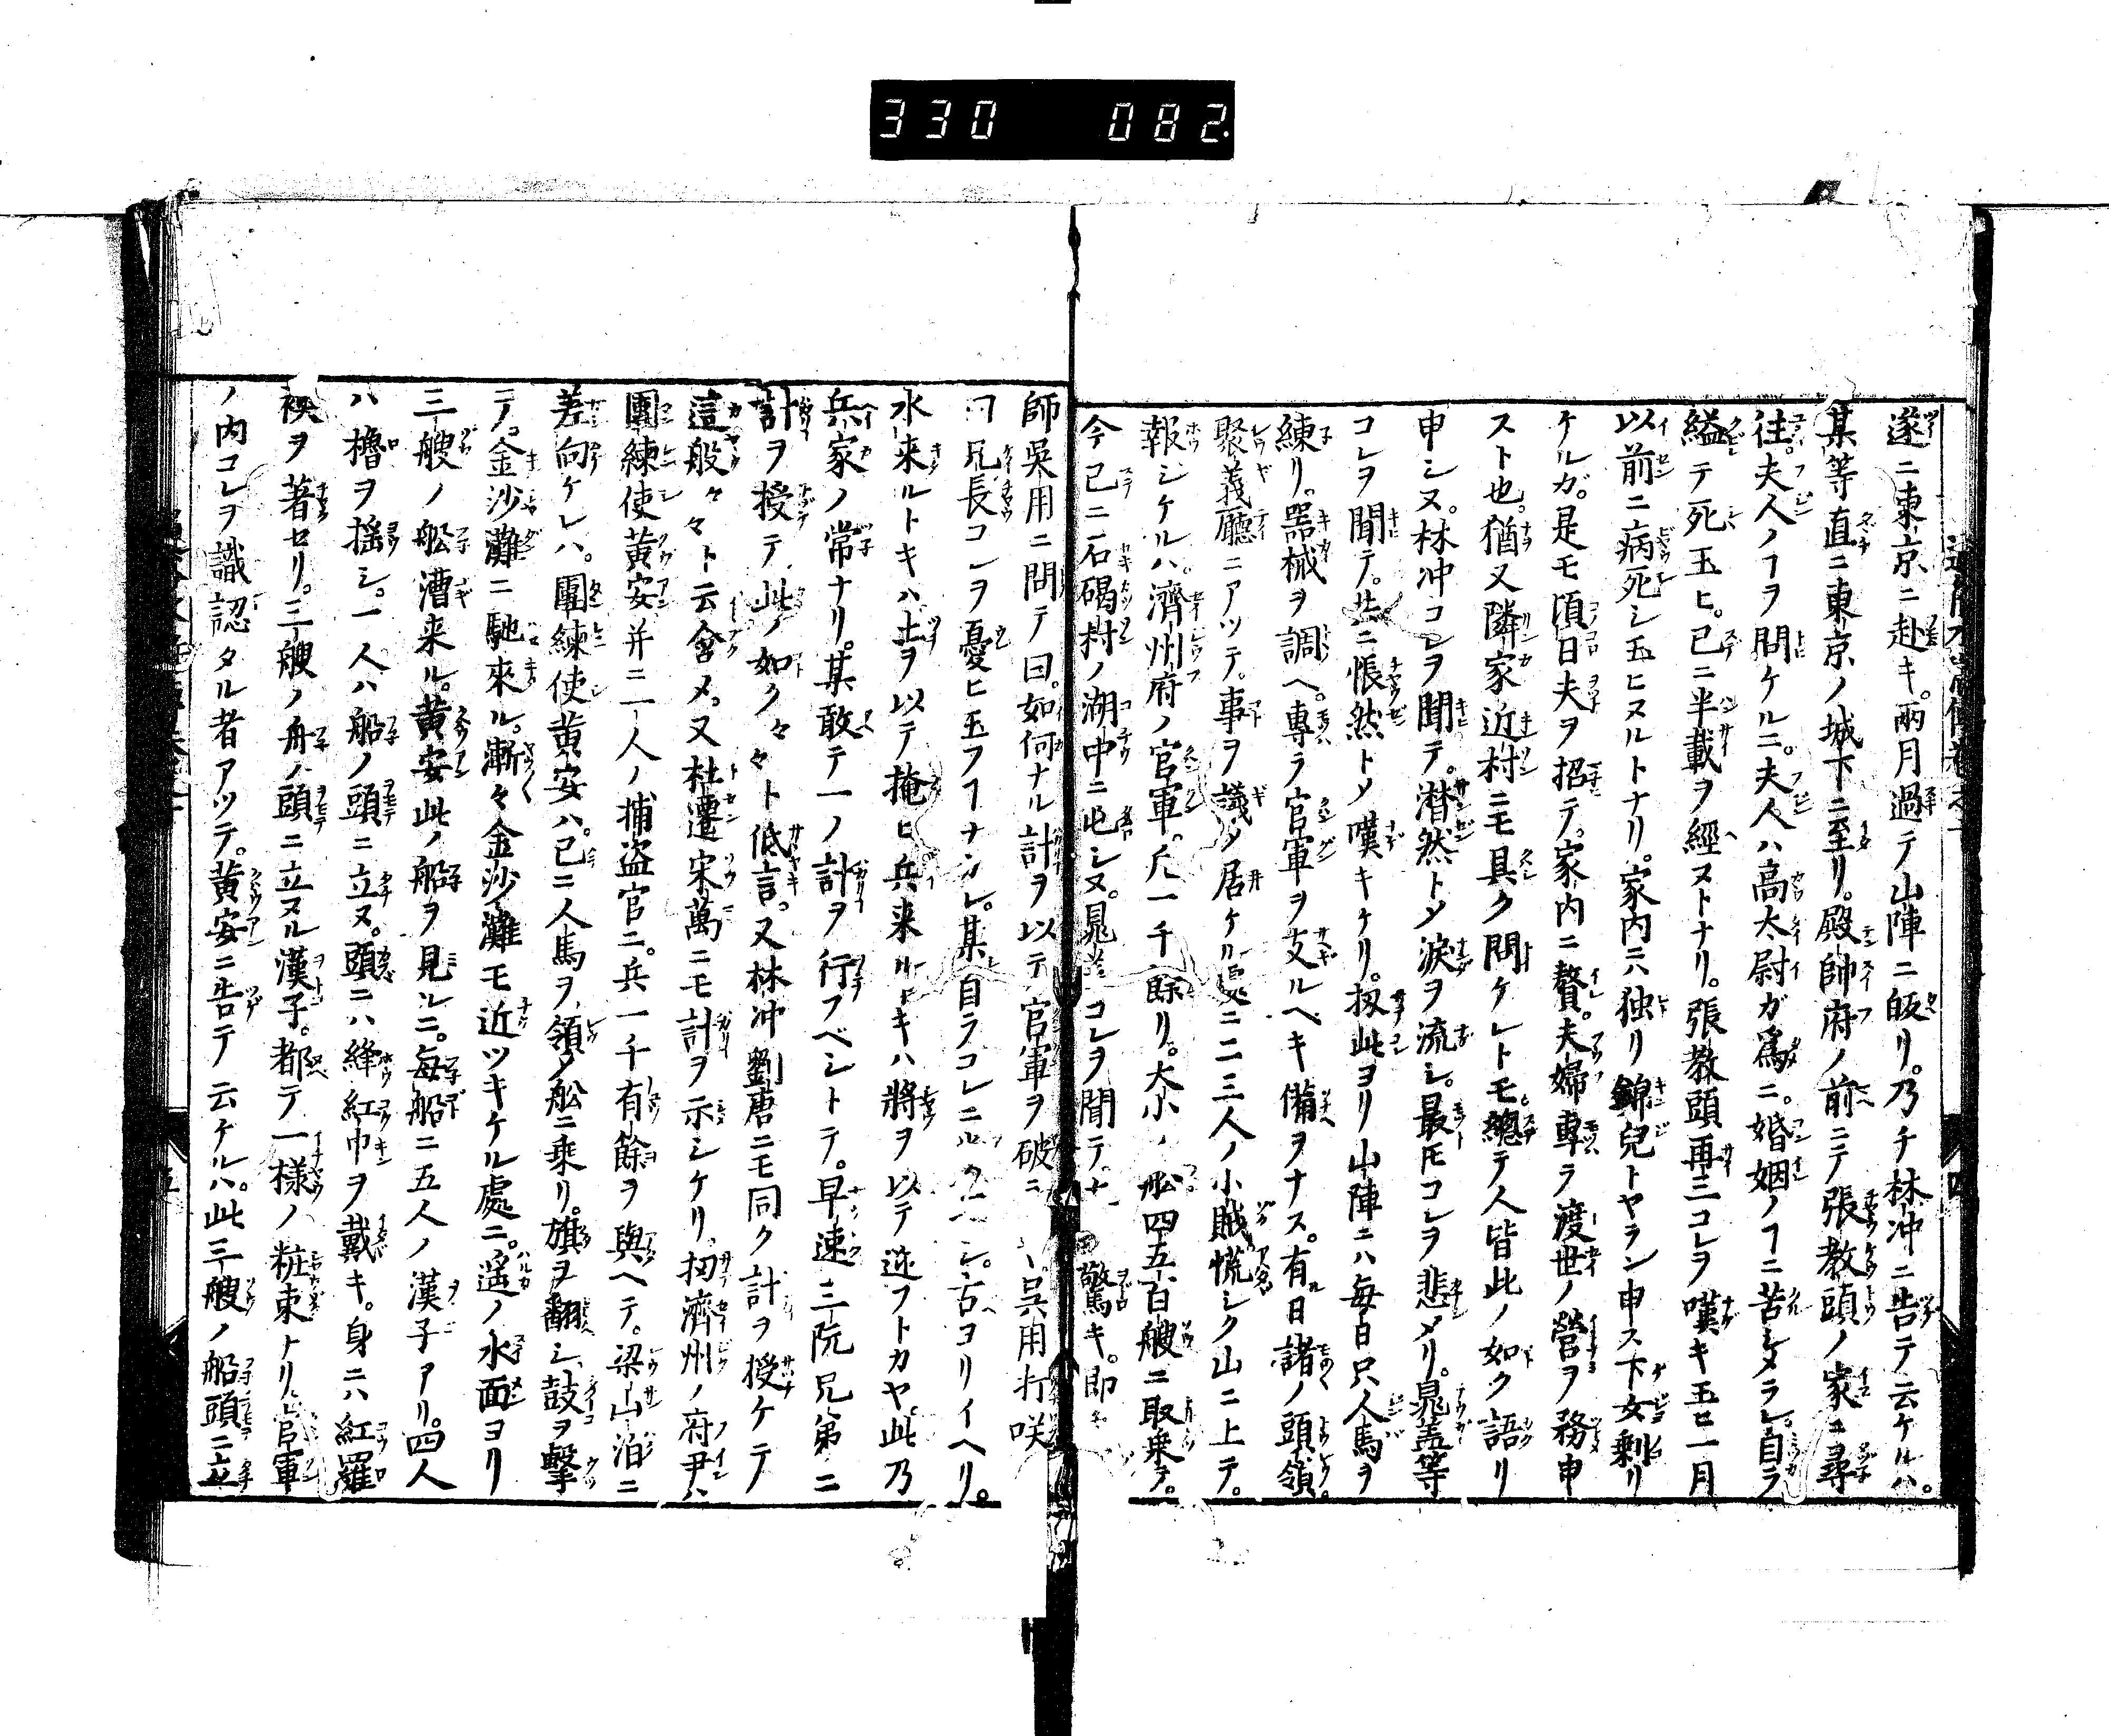 330 082
遂ニ東京ニ赴キ。兩月過テ山陣ニ皈リ。乃チ林冲ニ告テ云ケルハ。
某等直ニ東京ノ城下ニ至リ。殿帥府ノ前ニテ張教頭ノ家ヱ尋
往。夫人ノヿヲ問ケルニ。夫人ハ高太尉ガ爲ニ。婚姻ノヿニ苦シメラレ。自ラ
縊テ死玉ヒ。已ニ半載ヲ經ストナリ。張教頭再三コレヲ嘆キ玉ヒ一月
以前ニ病死シ玉ヒヌルトナリ。家内ニハ独リ錦兒トヤラン申ス下女剩リ
ケルガ。是モ頃日夫ヲ招テ。家内ニ贅。夫婦專ラ渡世ノ營ヲ務申
スト也。猶又隣家近村ニモ具ク問ケレトモ。總テ人皆此ノ如ク語リ
申シヌ。林冲コレヲ聞テ。潜然トメ淚ヲ流シ。最モコレヲ悲メリ。晁盖等
コレヲ聞テ。共ニ悵然トメ嘆キケリ。扨此ヨリ山陣ニハ毎日只人馬ヲ
練リ。器械ヲ調ヘ。專ラ官軍ヲ支ルヘキ備ヲナス。有日諸ノ頭領。
聚義廳ニアツテ。事ヲ議メ居ケル處ニ二三人ノ小賊慌シク山ニ上テ。
報シケルハ。濟州府ノ官軍。凡一千餘リ。大小ノ舩四五百艘ニ取乗テ。
今已ニ石碣村ノ湖中ニ屯シヌ。晁盖コレヲ聞テ。大 驚キ。即チ
師吳用ニ問テ曰。如何ナル計ヲ以テ官軍ヲ破ニ 吳用打咲
兄長コレヲ憂ヒ玉フヿナカレ。某自ラコレニ 古ヨリイヘリ。
水来ルトキハ土ヲ以テ掩ヒ兵来ルトキハ將ヲ以テ迎フトカヤ。此乃
兵家ノ常ナリ。某敢テ一ノ計ヲ行フベシトテ。早速三阮兄弟ニ
計ヲ授テ此ノ如ク々々ト低言。又林冲劉唐ニモ同ク計ヲ授ケテ
這般々々ト云含メ。又杜遷宋萬ニモ計ヲ示シケリ。扨濟州ノ府尹ハ
團練使黄安并ニ一人ノ捕盗官ニ。兵一千有餘ヲ與ヘテ。梁山泊ニ
差向ケレハ。團練使黄安ハ。已ニ人馬ヲ領メ舩ニ乗リ。旗ヲ翻シ鼓ヲ撃
テ。金沙灘ニ馳來ル。漸々金沙灘モ近ツキケル處ニ。遥ノ水面ヨリ
三艘ノ舩漕来ル。黄安此ノ船ヲ見シニ。毎船ニ五人ノ漢子アリ。四人
ハ櫓ヲ搖シ。一人ハ船ノ頭ニ立ヌ。頭ニハ絳紅巾ヲ戴キ。身ニハ紅羅
襖ヲ著セリ。三艘ノ舟ノ頭ニ立ヌル漢子。都テ一様ノ粧束ナリ。官軍
ノ内コレヲ識認タル者アツテ。黄安ニ告テ云ケルハ。此三艘ノ船頭ニ立